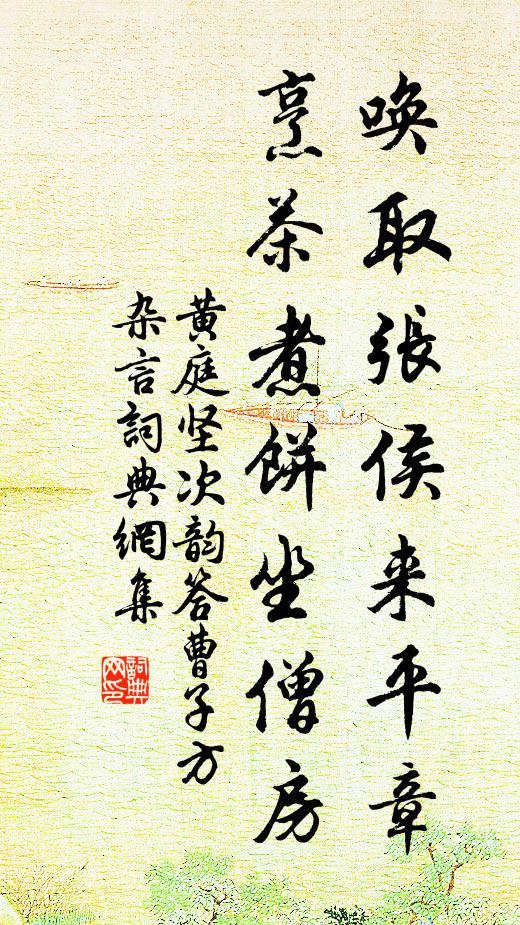 唤取張侯来平章
烹茶煮餅坐僧房
黄庭坚次韵答曹子方
杂言詞典網集
詞典网印